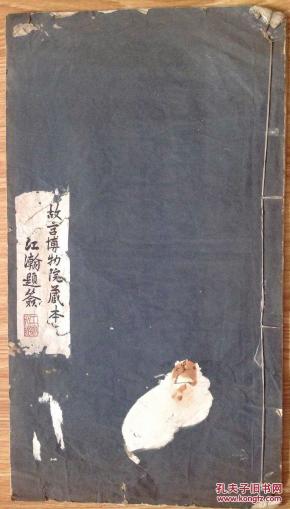 故宫博物院藏本
江瀚題簽
孔夫子旧书网